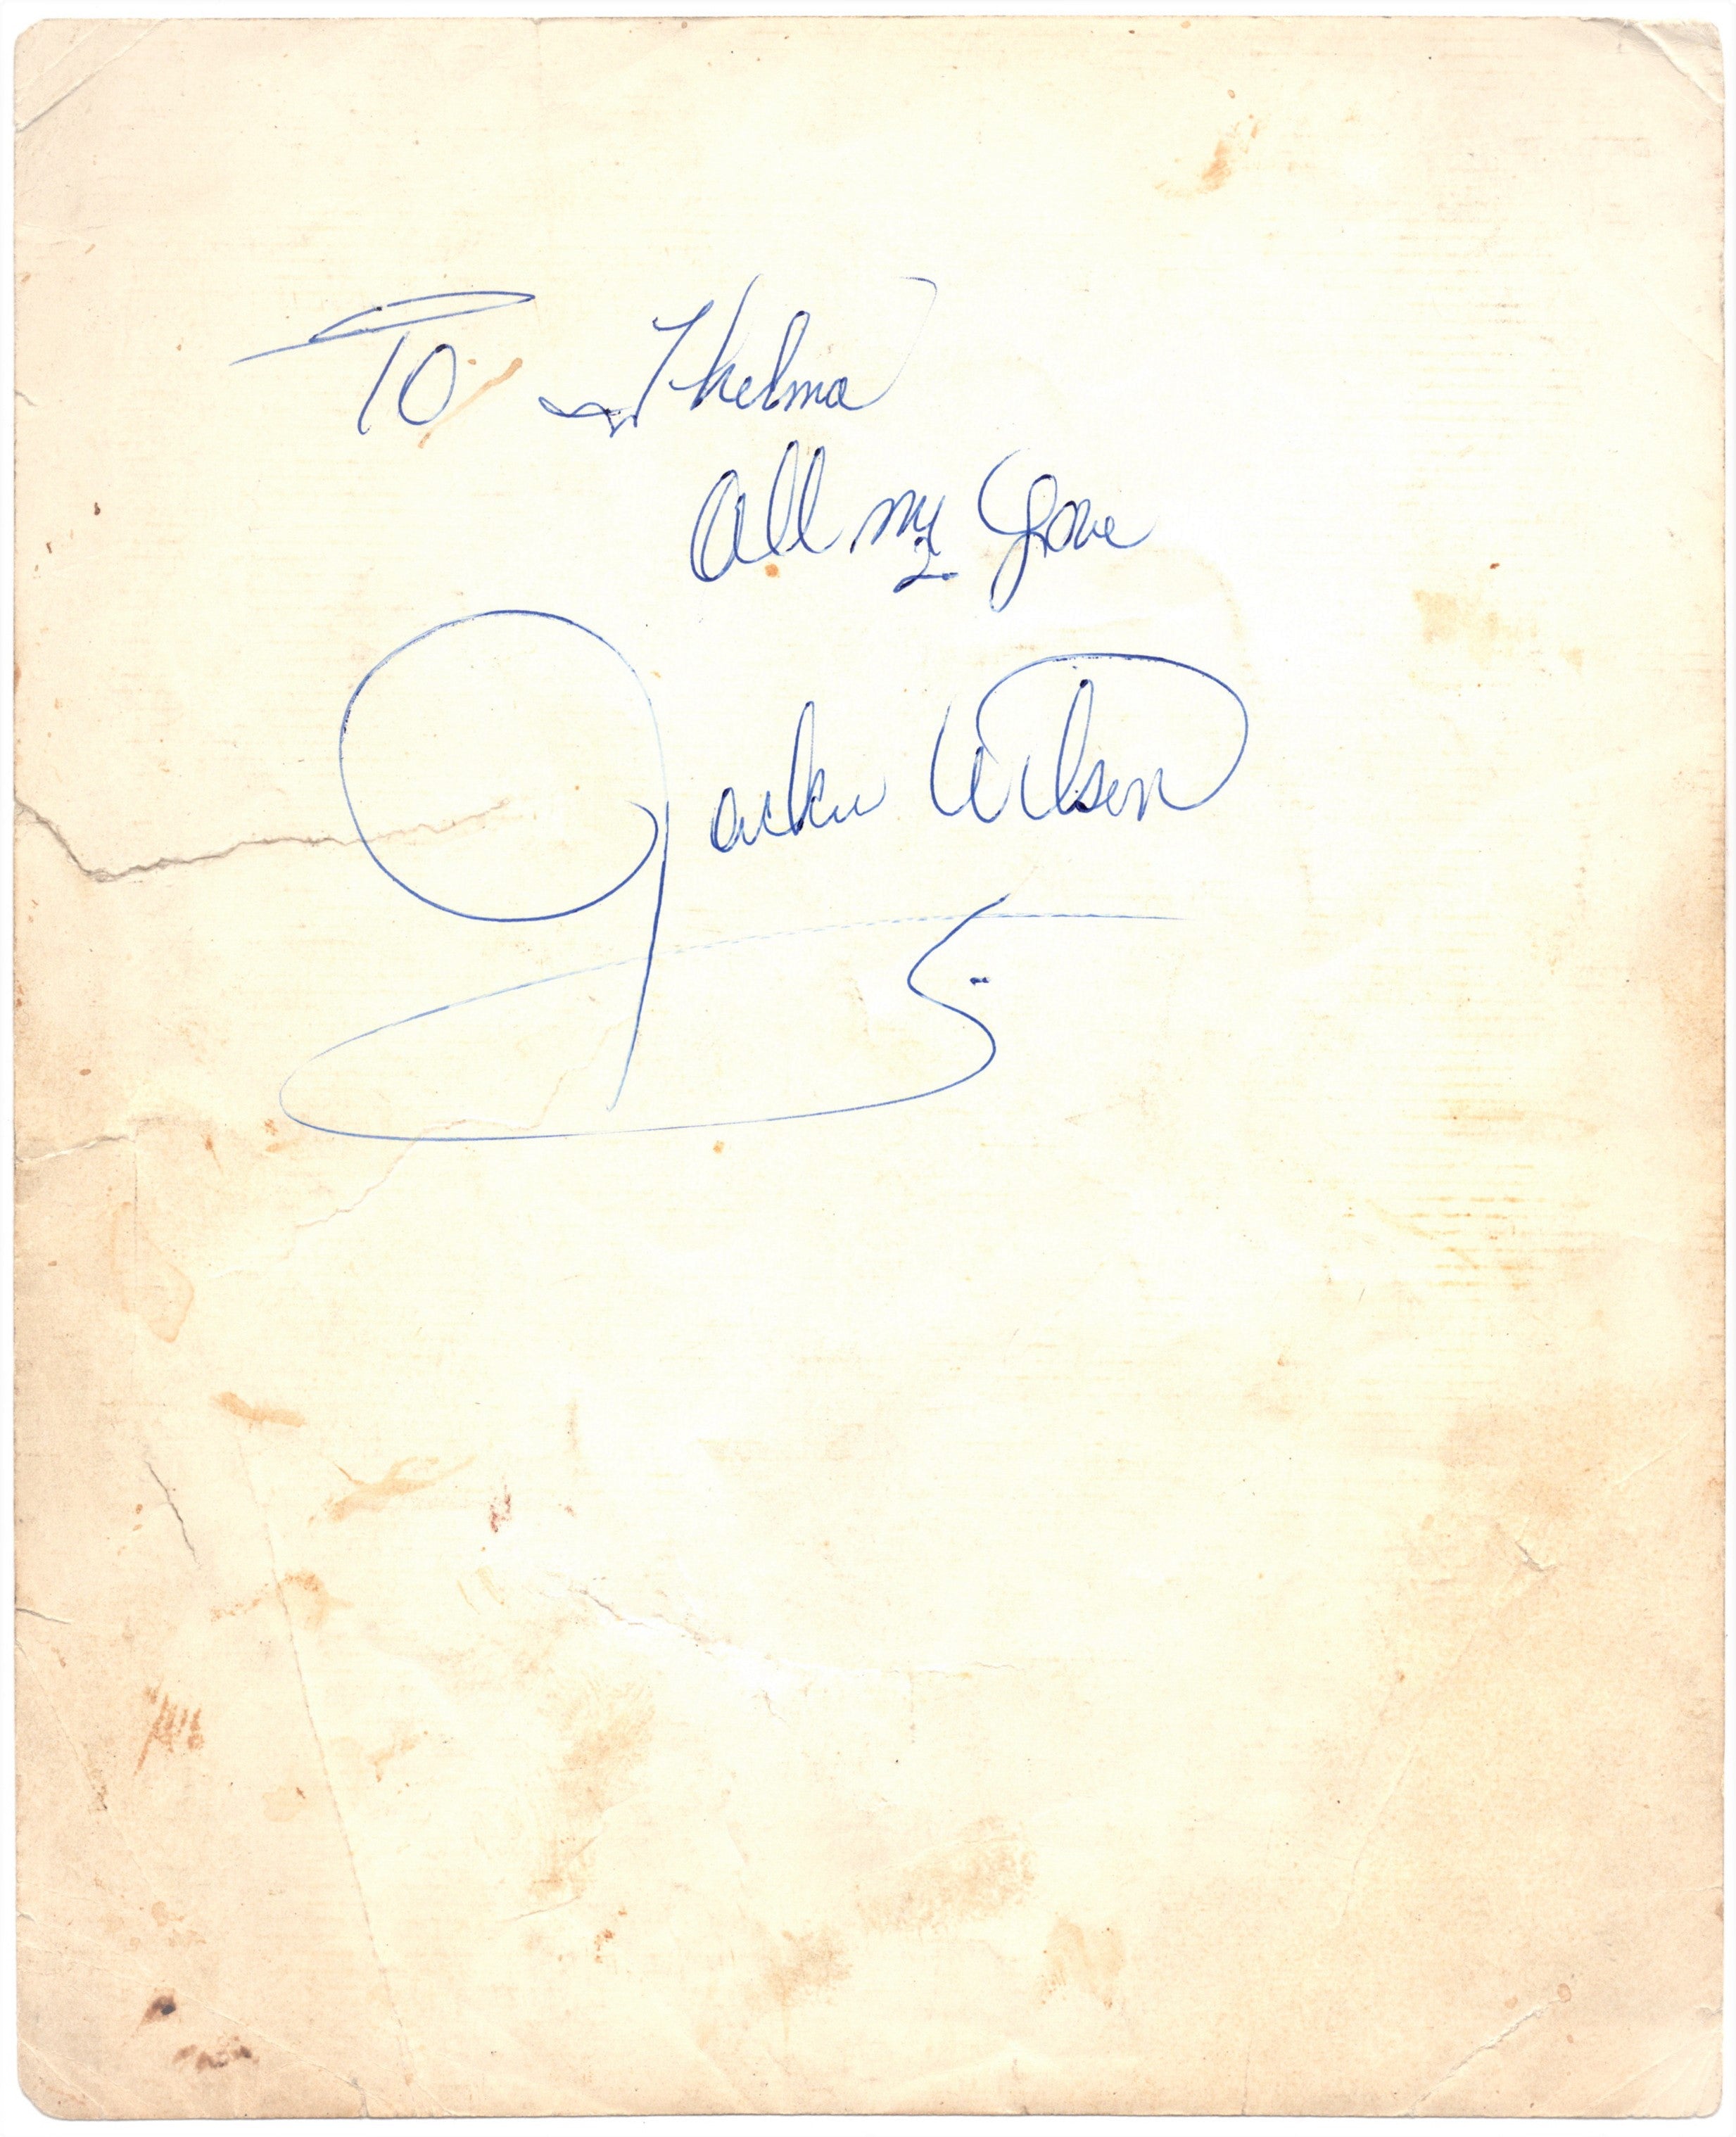 To Thelma
All my Love
Jackie Wilson